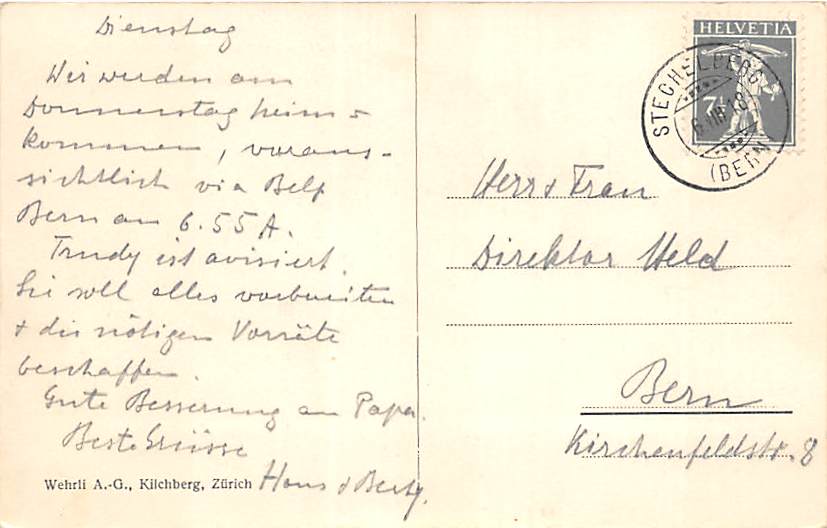 Dienstag
Wir werden am
Donnerstag heim-
kommen, voraus-
sichtlich via Belp
Bern an 6.55 A.
Trudy ist avisiert.
Sie soll alles vorbereiten
+ die nötigen Vorräte
beschaffen.
Gute Besserung an Papa.
Beste Grüsse
Hans + Berty.
Wehrli A.-G., Kilchberg, Zürich
HELVETIA
7½
STECHELBERG
(BERN)
6.VIII.18
Herr + Frau
Direktor Held
Bern
Kirchenfeldstr. 8